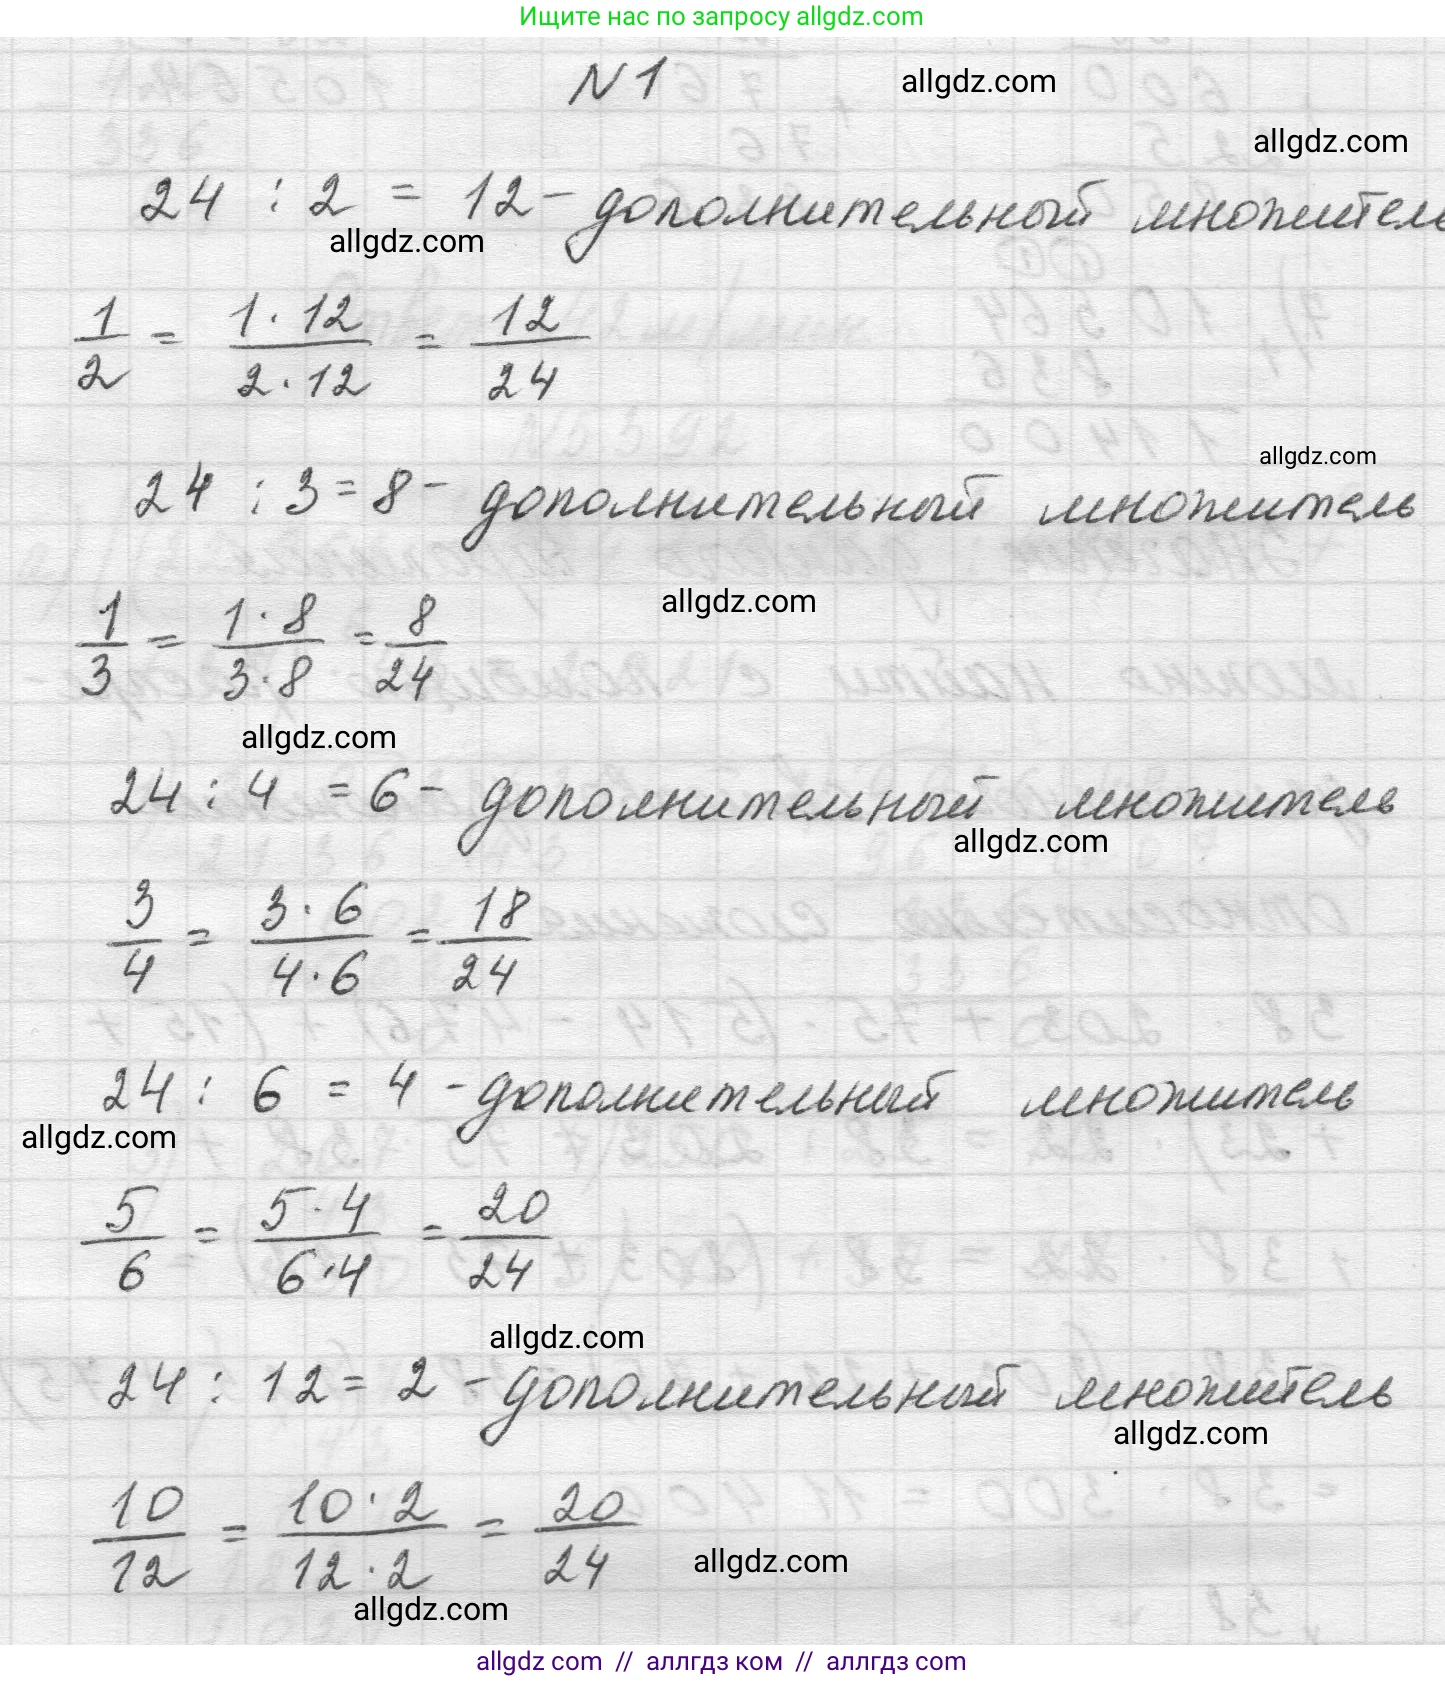 Ищите нас по запросу allgdz.com
N 1
allgdz.com
allgdz.com
24 : 2 = 12 - дополнительный множитель
allgdz.com
1/2 = 1 · 12 / 2 · 12 = 12/24
allgdz.com
24 : 3 = 8 - дополнительный множитель
allgdz.com
1/3 = 1 · 8 / 3 · 8 = 8/24
allgdz.com
24 : 4 = 6 - дополнительный множитель
allgdz.com
3/4 = 3 · 6 / 4 · 6 = 18/24
24 : 6 = 4 - дополнительный множитель
allgdz.com
5/6 = 5 · 4 / 6 · 4 = 20/24
allgdz.com
24 : 12 = 2 - дополнительный множитель
allgdz.com
10/12 = 10 · 2 / 12 · 2 = 20/24
allgdz.com
allgdz.com
allgdz com // аллгдз ком // аллгдз com